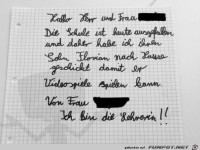 Hallo Herr und Frau
Die Schule ist heute ausgefallen
und daher habe ich ihren
Sohn Florian nach Hause
geschickt damit er
Videospiele spielen kann
Von Frau
Ich bin die Lehrerin!!